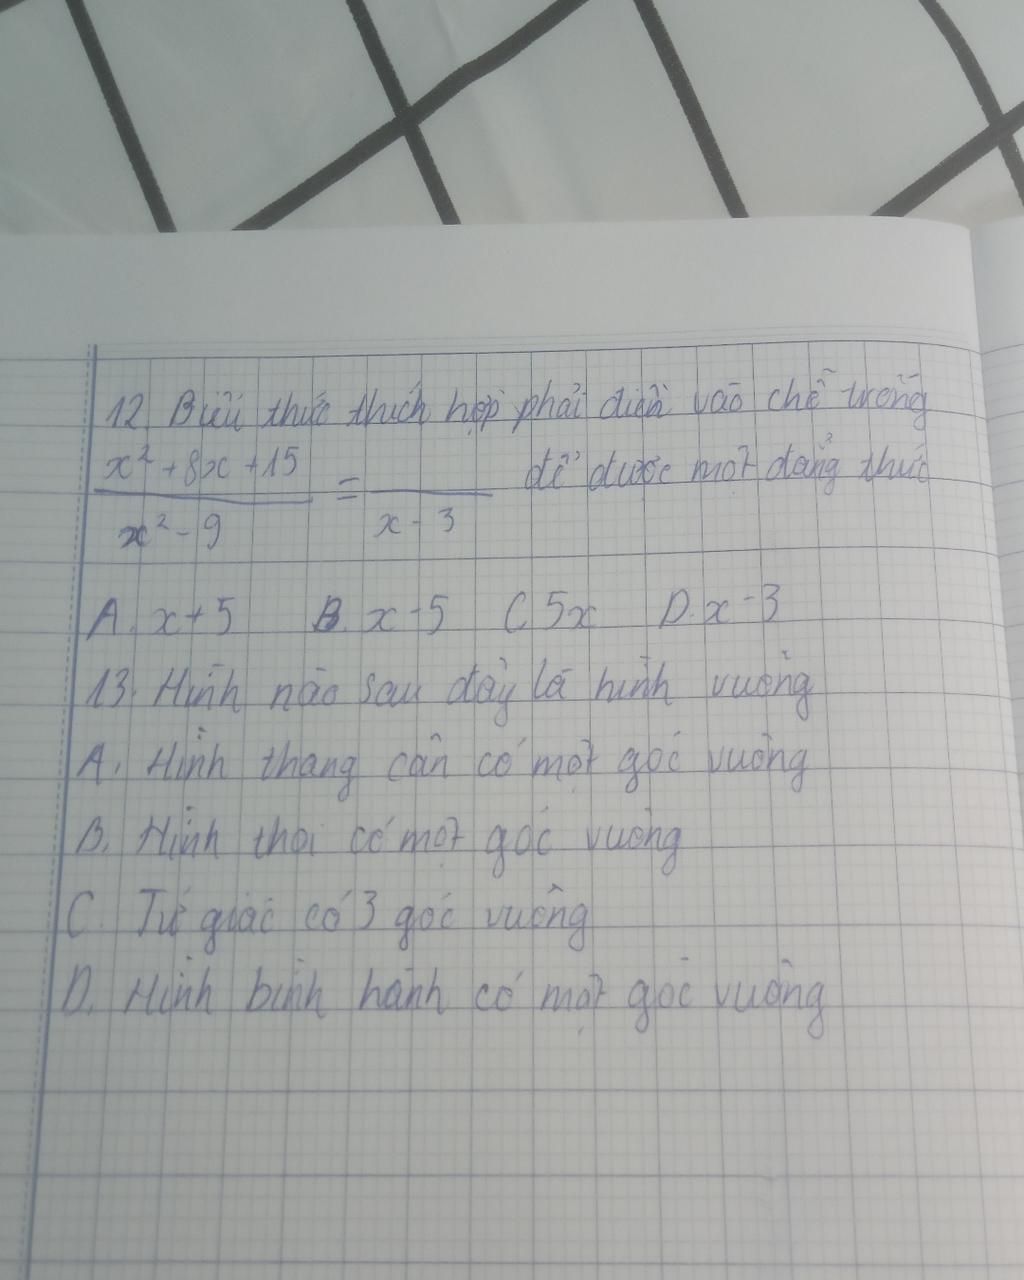 12. Biểu thức thích hợp phải điền vào chỗ trống
x² + 8x + 15 / x² - 9 = / x - 3 để được một đẳng thức
A. x + 5 B. x - 5 C 5x D. x - 3
13. Hình nào sau đây là hình vuông
A. Hình thang cân có một góc vuông
B. Hình thoi có một góc vuông
C. Tứ giác có 3 góc vuông
D. Hình bình hành có một góc vuông